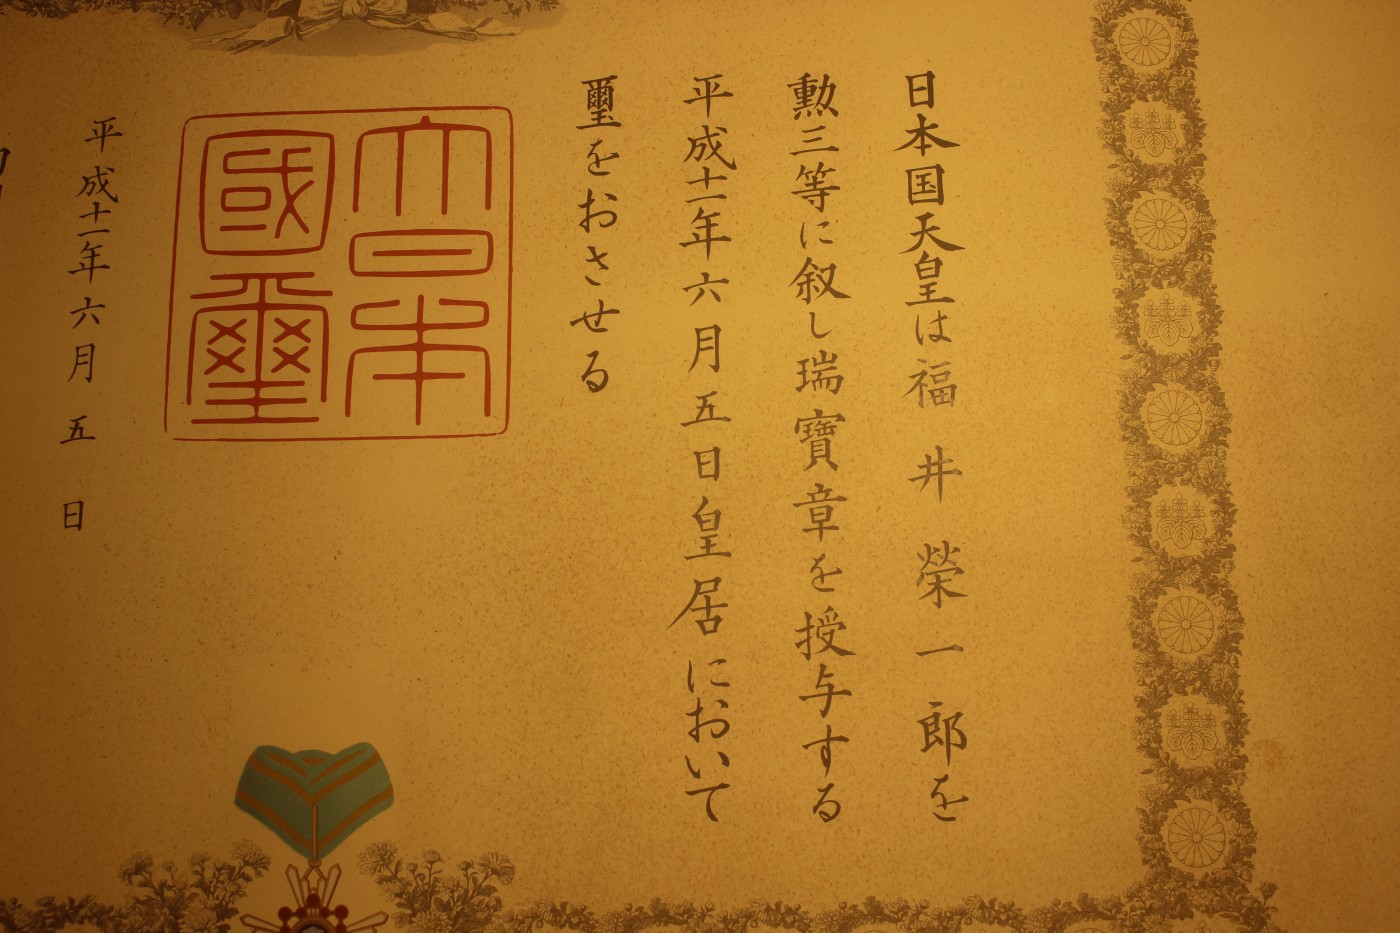 日本国天皇は福井榮一郎を
勲三等に叙し瑞寶章を授与する
平成十一年六月五日皇居において
璽をおさせる
大日本
國璽
平成十一年六月五日